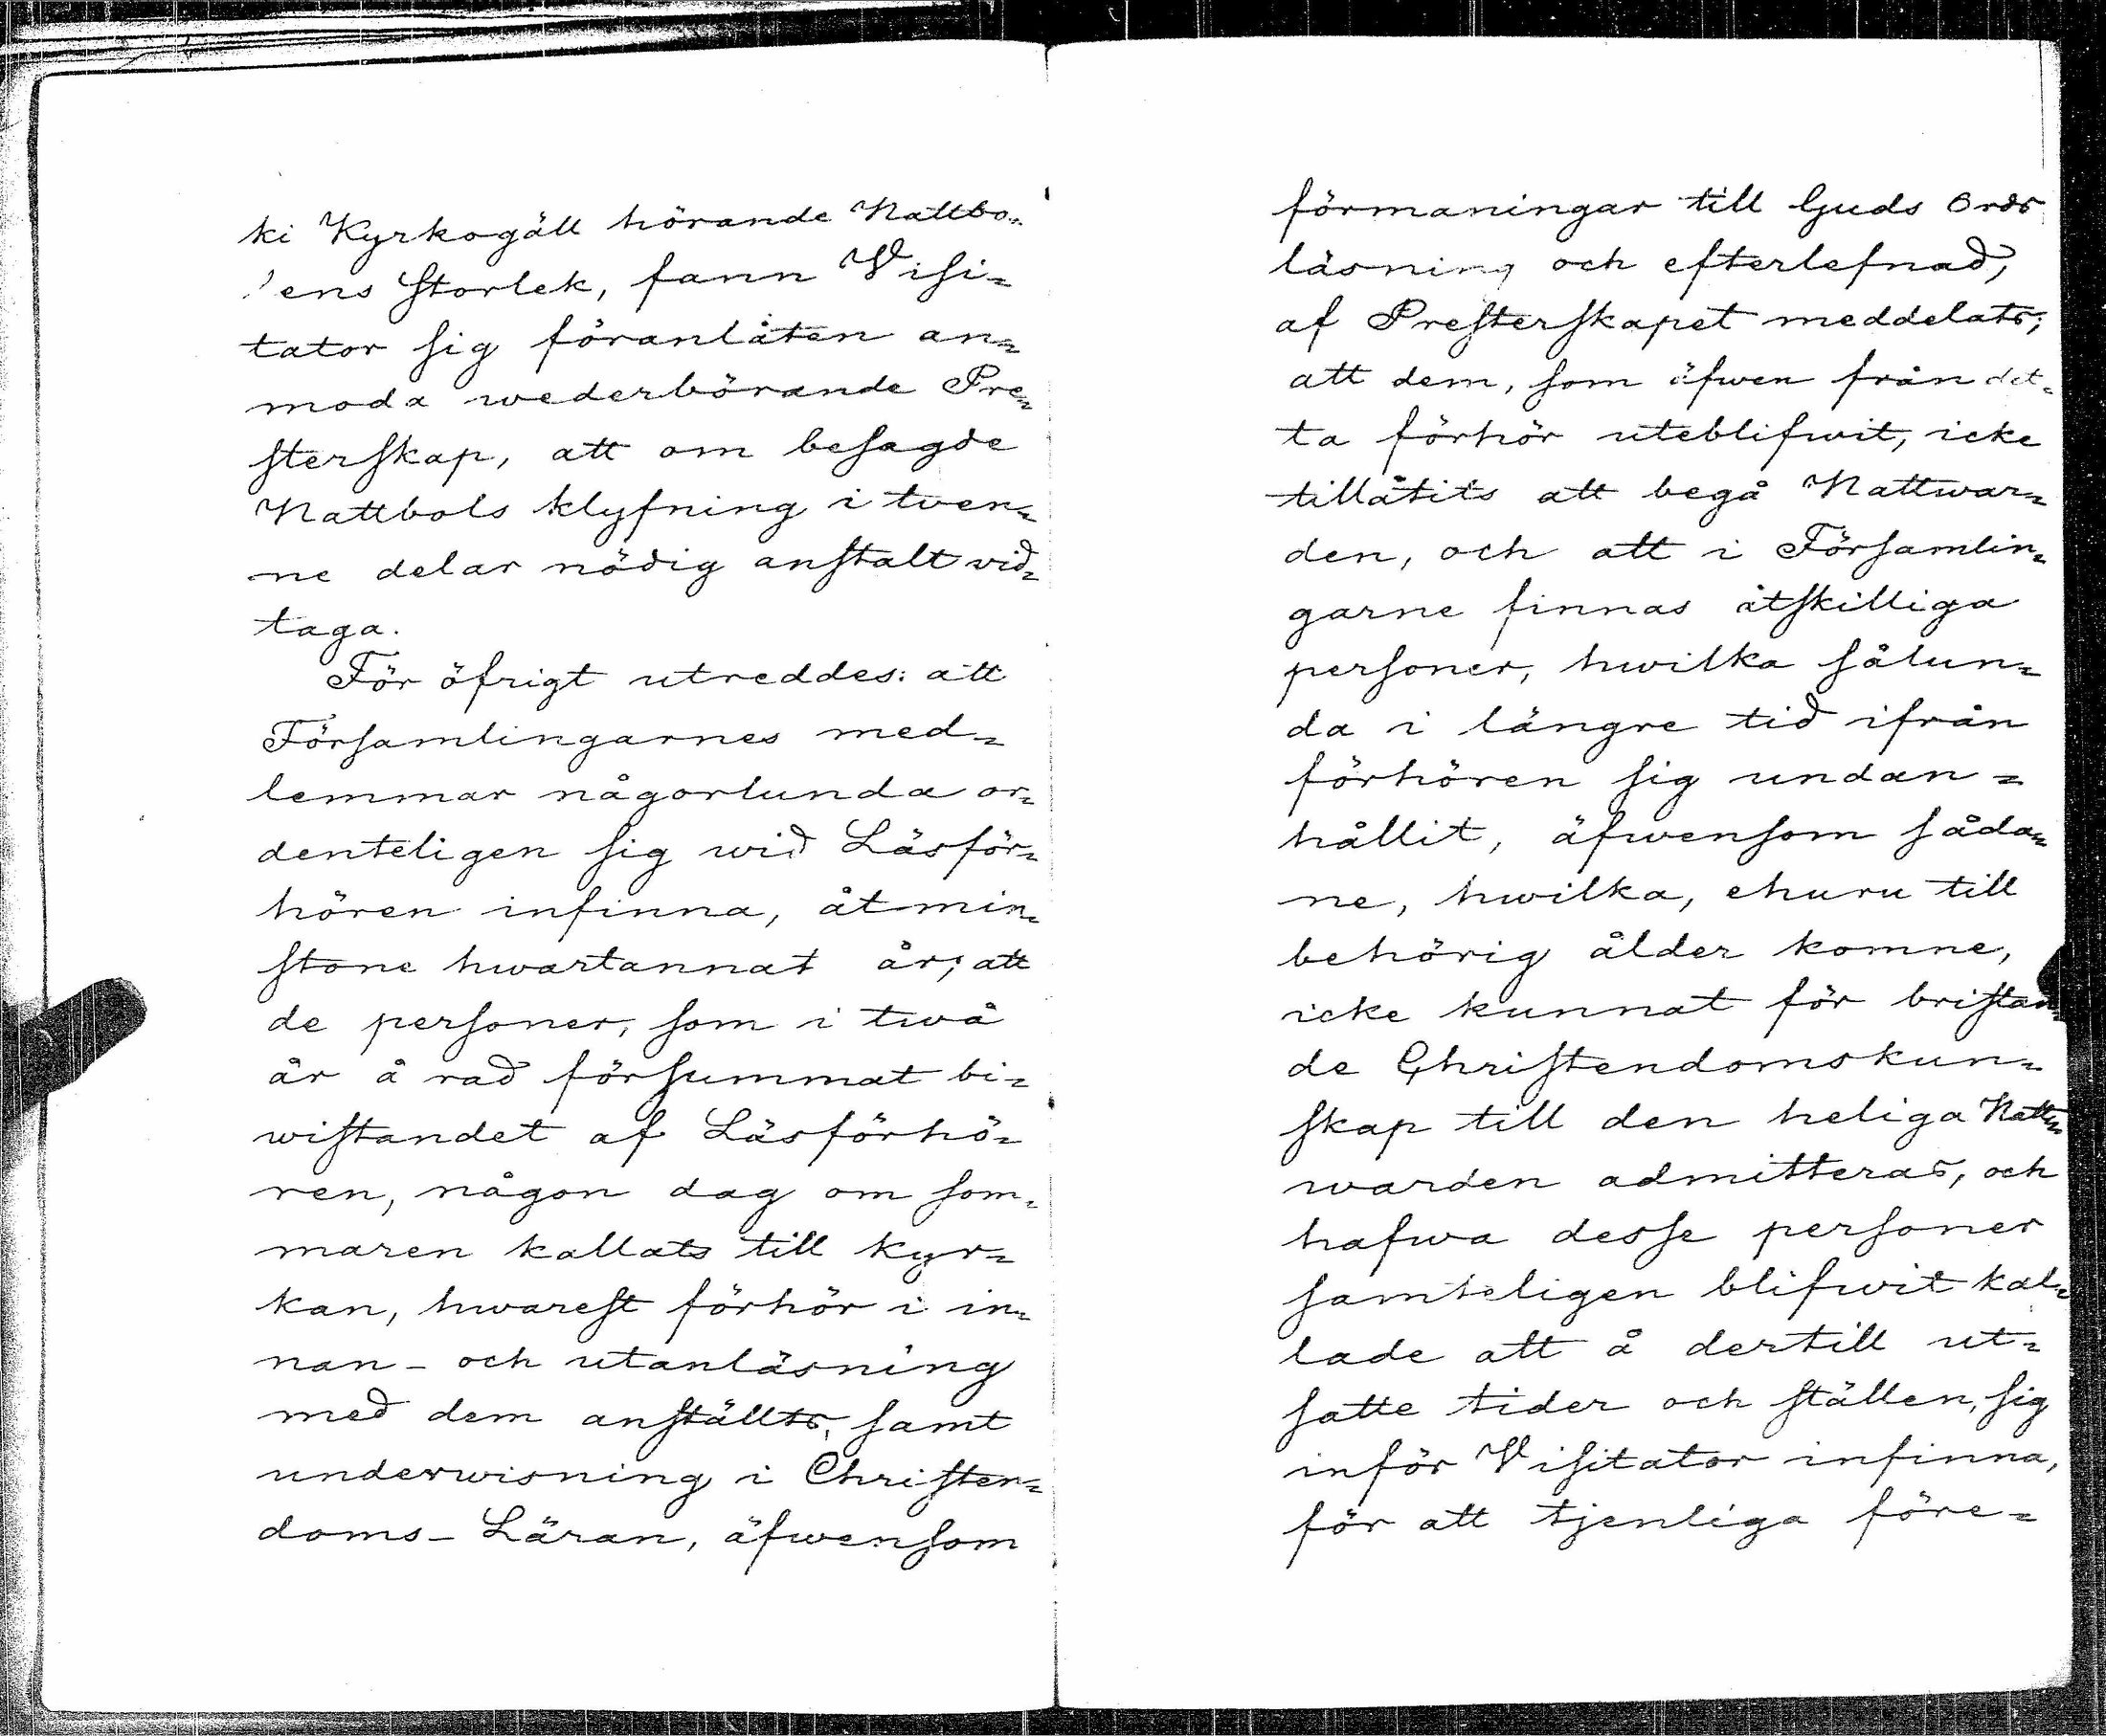 ki Kyrkogäll hörande Nattbo=
lens Storlek, fann Visi=
tator sig föranlåten an=
moda wederbörande Pre=
sterskap, att om besagde
Nattbols klyfning i twen=
ne delar nödig anstalt vid=
taga.
För öfrigt utreddes: att
Församlingarnes med=
lemmar någorlunda or=
denteligen sig wid Läsför=
hören infinna, åtmin=
stone hwartannat år; att
de personer, som i twå
år å rad försummat bi=
wistandet af Läsförhö=
ren, någon dag om som=
maren kallats till kyr=
kan, hwarest förhör i in=
nan- och utanläsning
med dem anställts, samt
underwisning i Christen=
doms-Läran, äfwensom
förmaningar till Guds Ords
läsning och efterlefnad,
af Presterskapet meddelats;
att dem, som äfwen från det=
ta förhör uteblifwit, icke
tillåtits att begå Nattwar=
den, och att i Församlin=
garne finnas åtskilliga
personer, hwilka sålun=
da i längre tid ifrån
förhören sig undan=
hållit, äfwensom såda=
ne, hwilka, ehuru till
behörig ålder komne,
icke kunnat för bristan=
de Christendomskun=
skap till den heliga Natt=
warden admitteras, och
hafwa desse personer
samteligen blifwit kal=
lade att å dertill ut=
satte tider och ställen, sig
inför Visitator infinna,
för att tjenliga före=